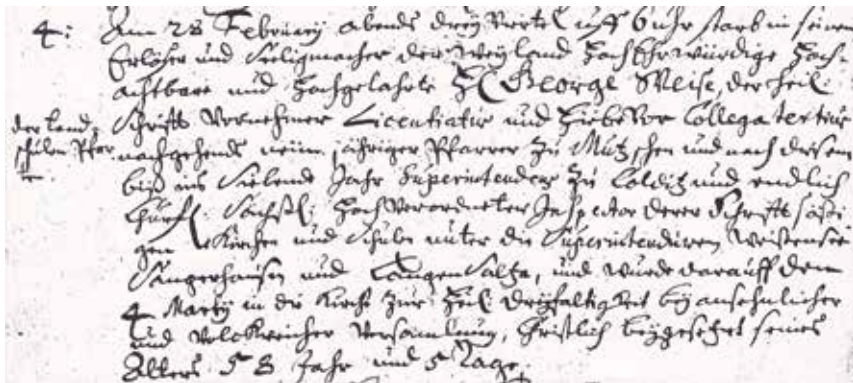 4: Am 28 February abends drey Viertel uff 6 uhr starb in seinem
Erlöser und Seeligmacher der Weyland HochEhrwürdige Hoch-
achtbare und Hochgelahrte H. George Weise, der heil:
Schrifft Vornehmer Licentiatus und hiebevor Collega tertius
der Land-
schulen Pfor
nachgehends neun jähriger Pfarrer zu Mutzschen und nach diesem
biß ins Siebende Jahr Superintendens zu Colditz und endlich
Churf: Sächs: Hochverordneter Inspector derer Schrifftsäßi-
gen Kirchen und Schulen unter die Superintenduren Weißensee
Sangerhausen und LangenSaltza, und wurde darauff dem
4 Marty in der Kirche zur Heil: Dreyfaltigkeit bey ansehnlicher
und Volckreicher Versamlung, Christlich beygesetzt seines
Alters 58 Jahr und 5 Tage.